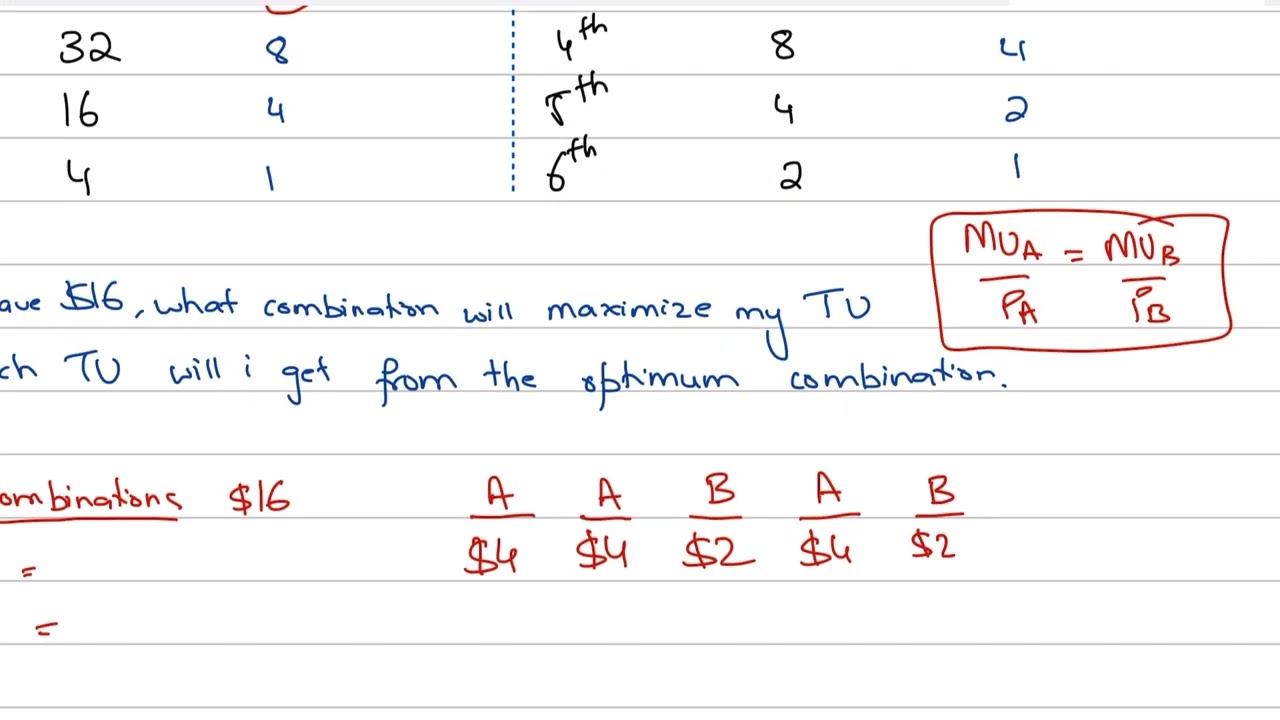 32 8 4th 8 4
16 4 5th 4 2
4 1 6th 2 1
MUA = MUB
PA PB
ave $16, what combination will maximize my TU
ch TU will i get from the optimum combination.
ombinations $16 A A B A B
= $4 $4 $2 $4 $2
=